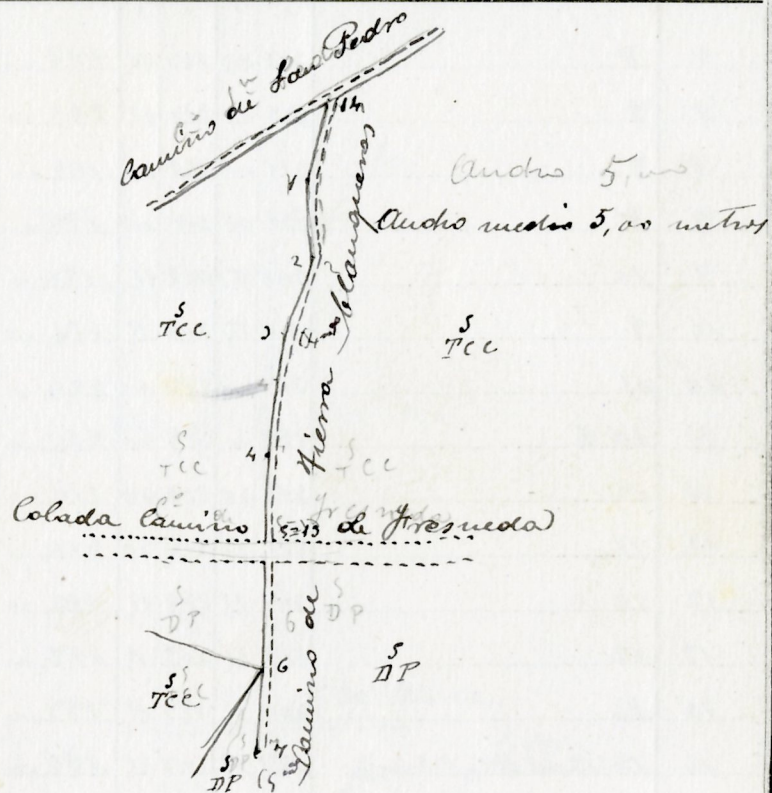 Camino de San Pedro
14
1
Ancho 5,00
Ancho medio 5,00 metros
2
S
TCC
3
S
TCC
Camino de Tierra Blanqueras
4
S
TCC
S
TCC
Colada Camino 5=13 de Fresneda
S
DP
6
S
DP
6
S
TCC
S
DP
7
S
DP